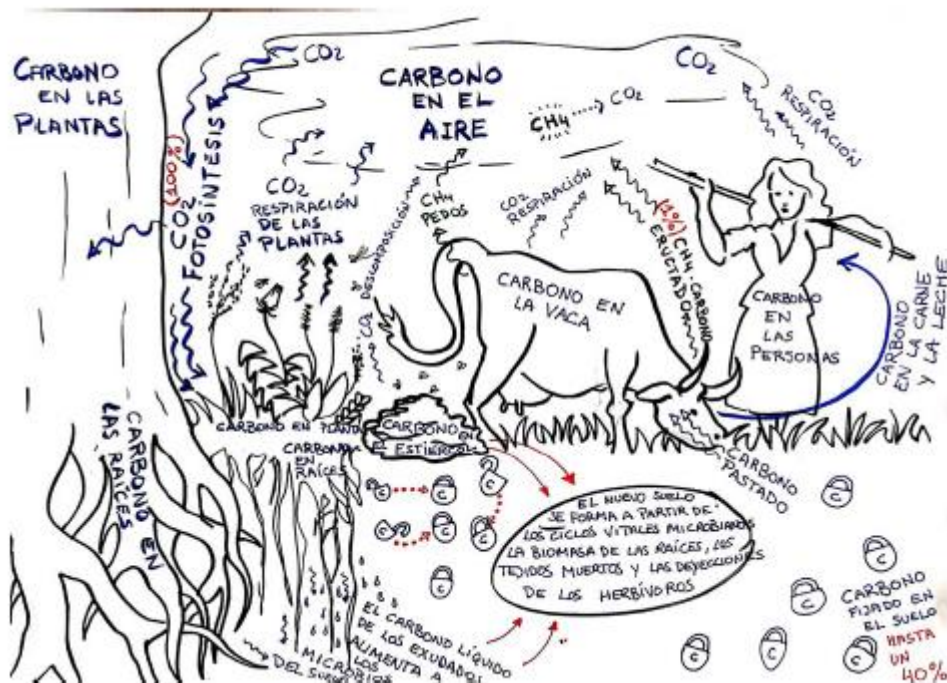 CARBONO
EN LAS
PLANTAS
CO2
CO2 (100%)
FOTOSÍNTESIS
CARBONO
EN EL
AIRE
CH4
CO2
CO2
CO2
RESPIRACIÓN
CO2
RESPIRACIÓN
DE LAS
PLANTAS
CO2 DESCOMPOSICIÓN
CH4
PEDOS
CO2
RESPIRACIÓN
(1%) CH4-CARBONO
ERUCTADO
CARBONO EN
LA VACA
CARBONO
EN
LAS
PERSONAS
CARBONO
EN LA CARNE
Y LA LECHE
CARBONO EN PLANTA
CARBONO
EN
ESTIERCOL
CARBONO
EN
RAÍCES
CARBONO EN
LAS RAÍCES
CARBONO
PASTADO
C
C
C
C
C
C
C
C
C
C
C
C
C
EL NUEVO SUELO
SE FORMA A PARTIR DE
LOS CICLOS VITALES MICROBIANOS
LA BIOMASA DE LAS RAÍCES, LOS
TEJIDOS MUERTOS Y LAS DEYECCIONES
DE LOS HERBÍVOROS
EL CARBONO LÍQUIDO
DE LOS EXUDADOS
ALIMENTA A
LOS
MICROBIOS
DEL SUELO
CARBONO
FIJADO EN
EL SUELO
HASTA
UN
40%